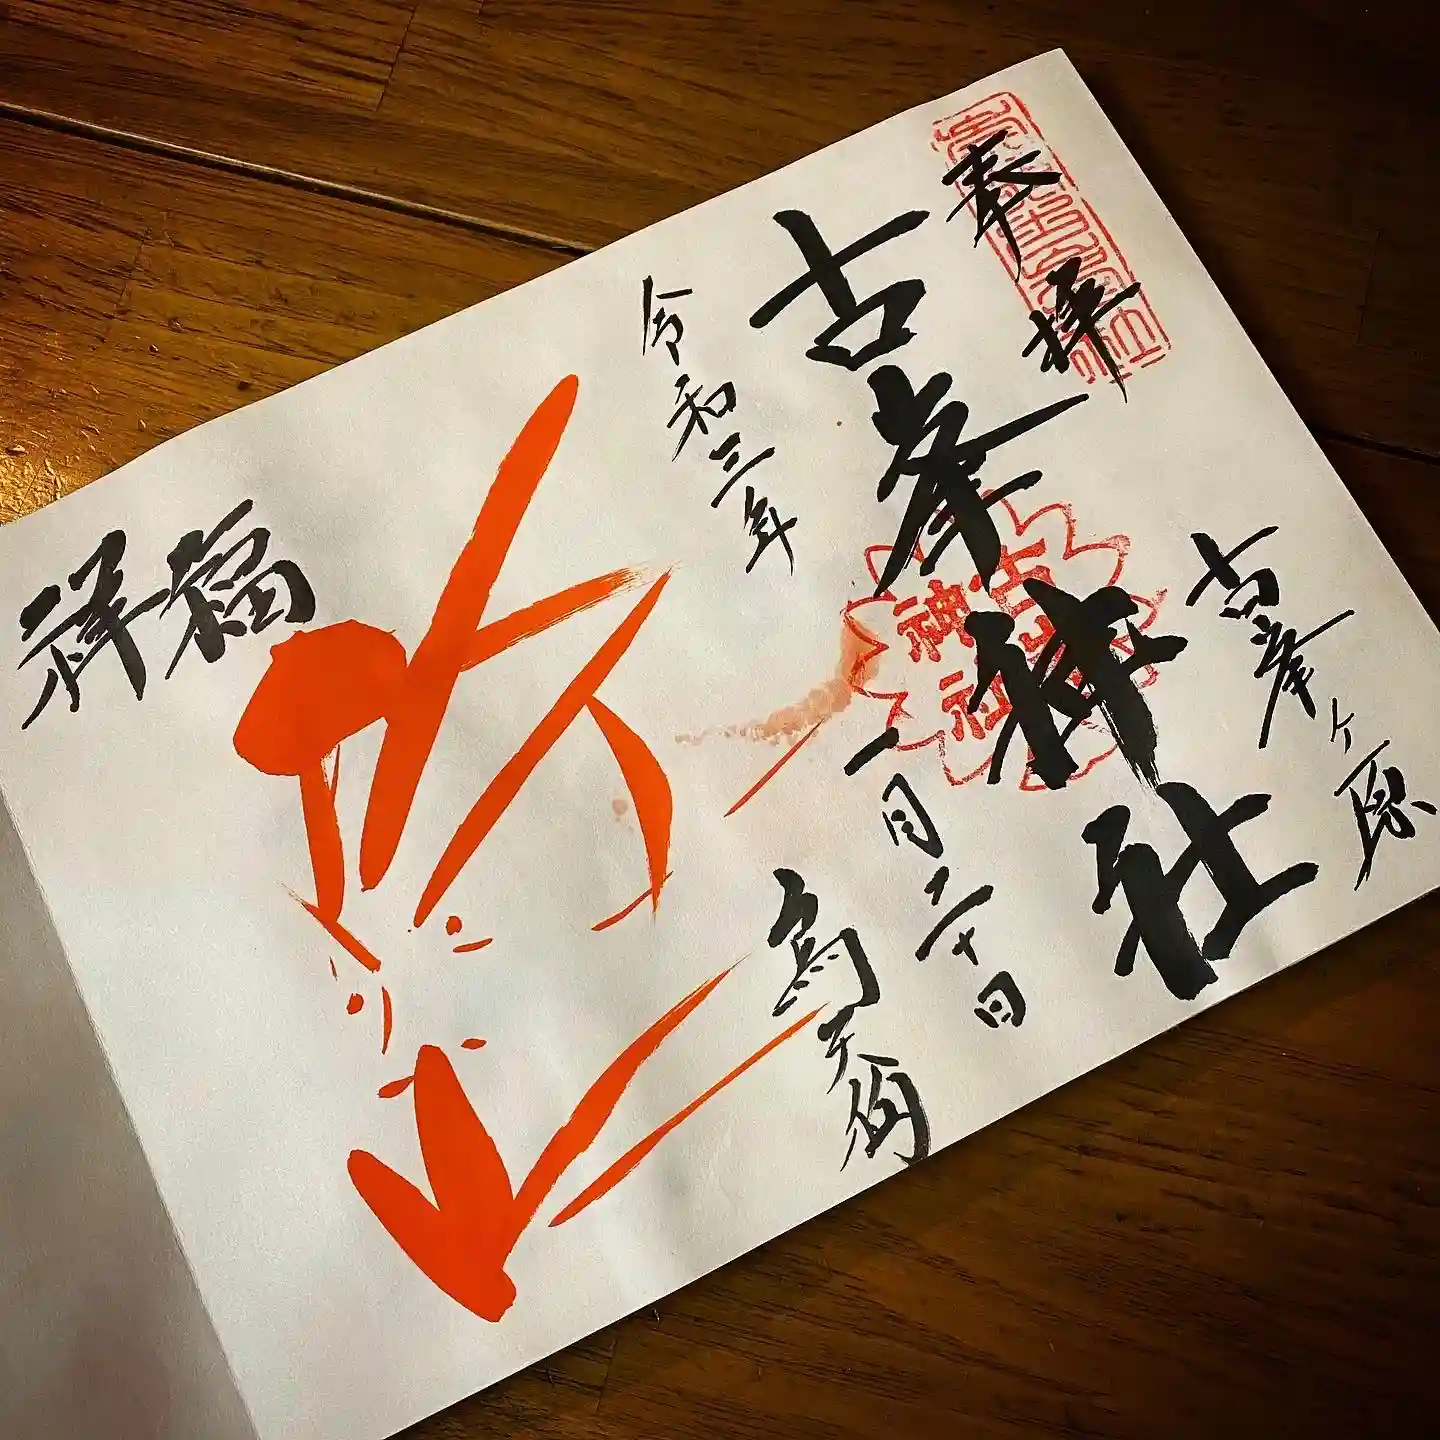 奉拝
古峯ヶ原
古峯神社
古峯神社
令和三年
一月二十日
烏天狗
福祥